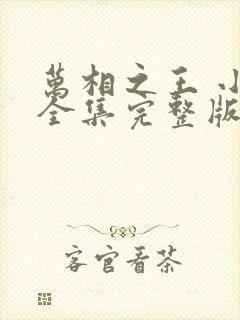 萬相之王 小
全集完整版
客官看茶